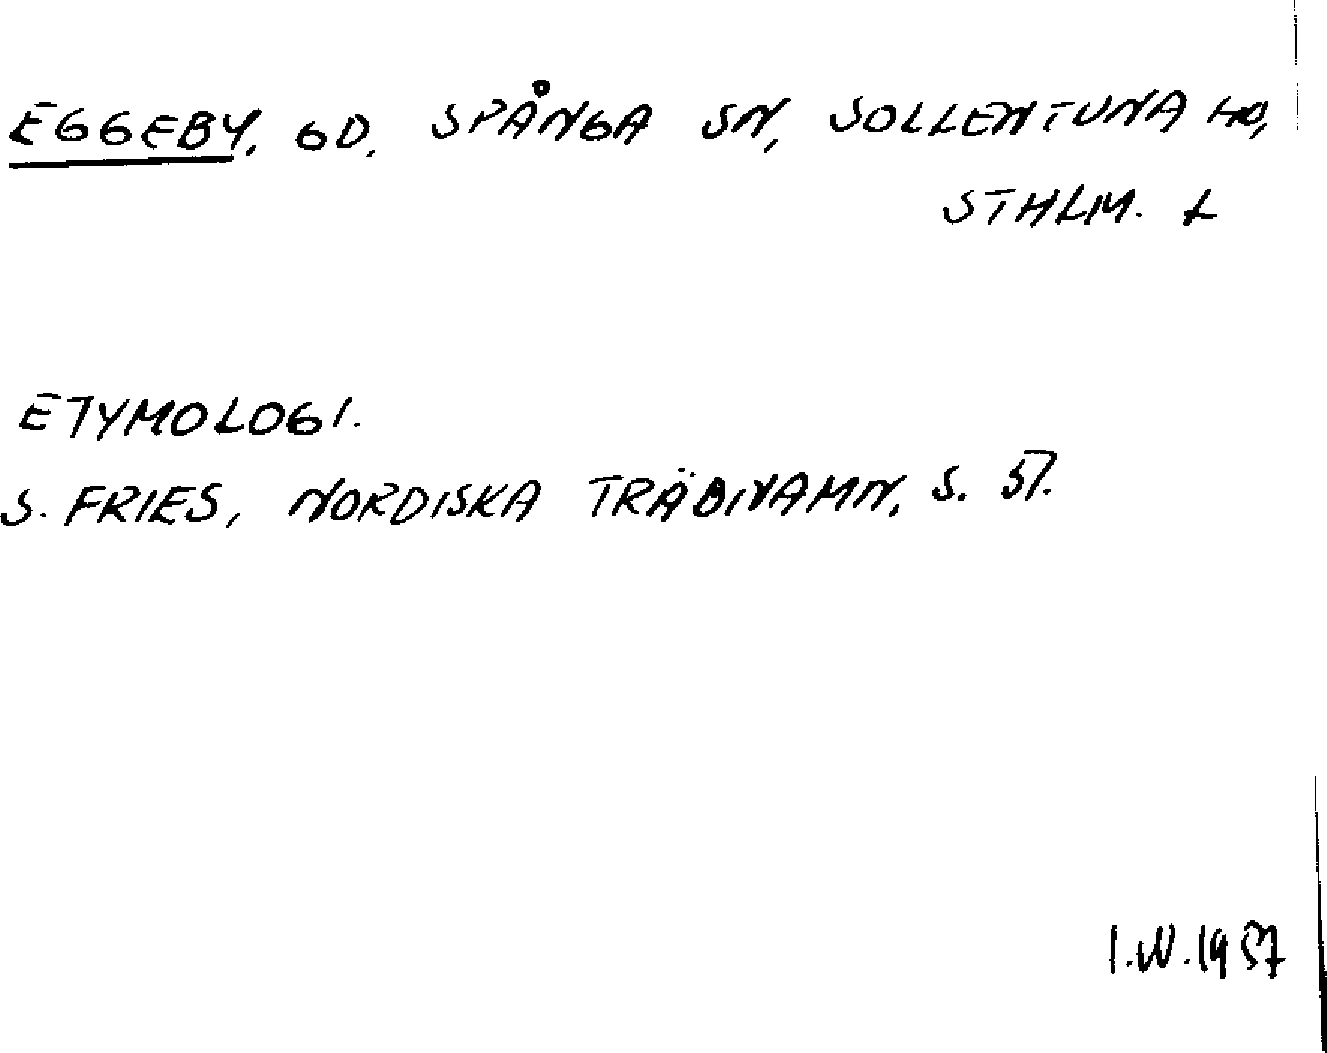 EGGEBY, GD, SPÅNGA SN, SOLLENTUNA HD,
STHLM. L
ETYMOLOGI.
S. FRIES, NORDISKA TRÄDNAMN, S. 57.
I.W. 1957